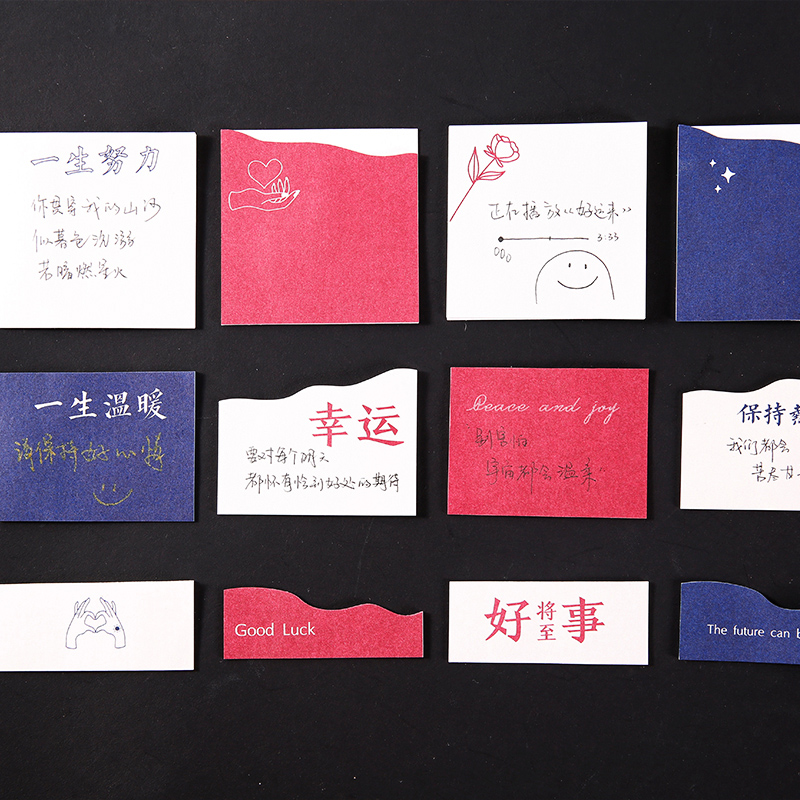 一生努力
你是穿我的山河
似暮色沉溺
若暗燃星火
正在播放《好运来》
3:33
一生温暖
请保持好心情
幸运
要对每个明天
都怀有恰到好处的期待
Peace and joy
别害怕
宇宙都会温柔
保持
我们都会
苦尽甘
Good Luck
好将至事
The future can b